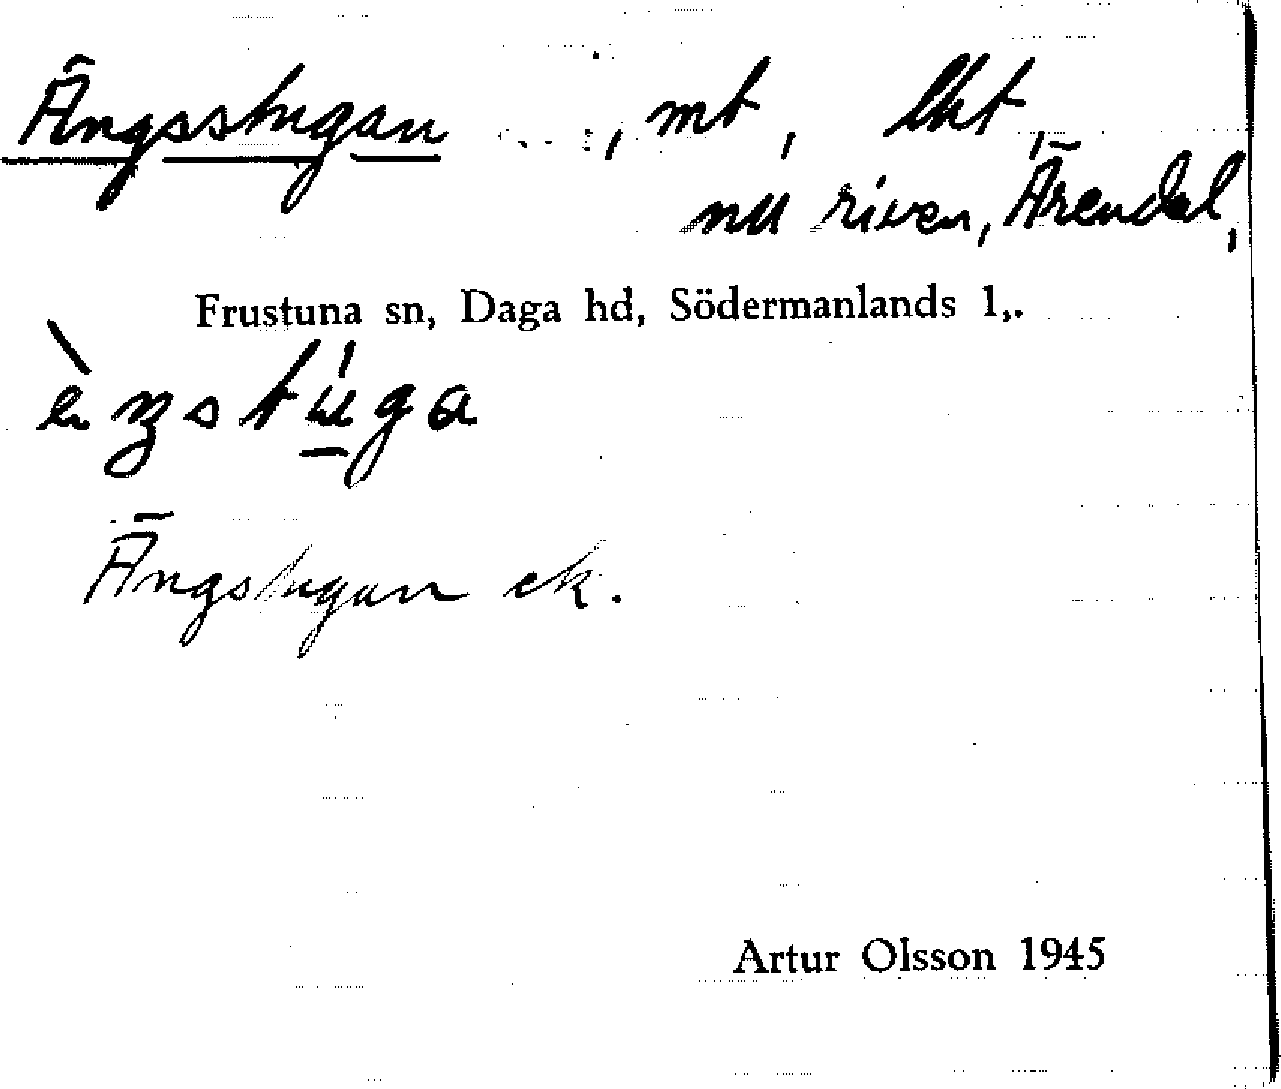 Ängsstugan , mt, lht,
nu riven, Ärendal,
Frustuna sn, Daga hd, Södermanlands l,.
èŋstúga
Ängstugan ek.
Artur Olsson 1945